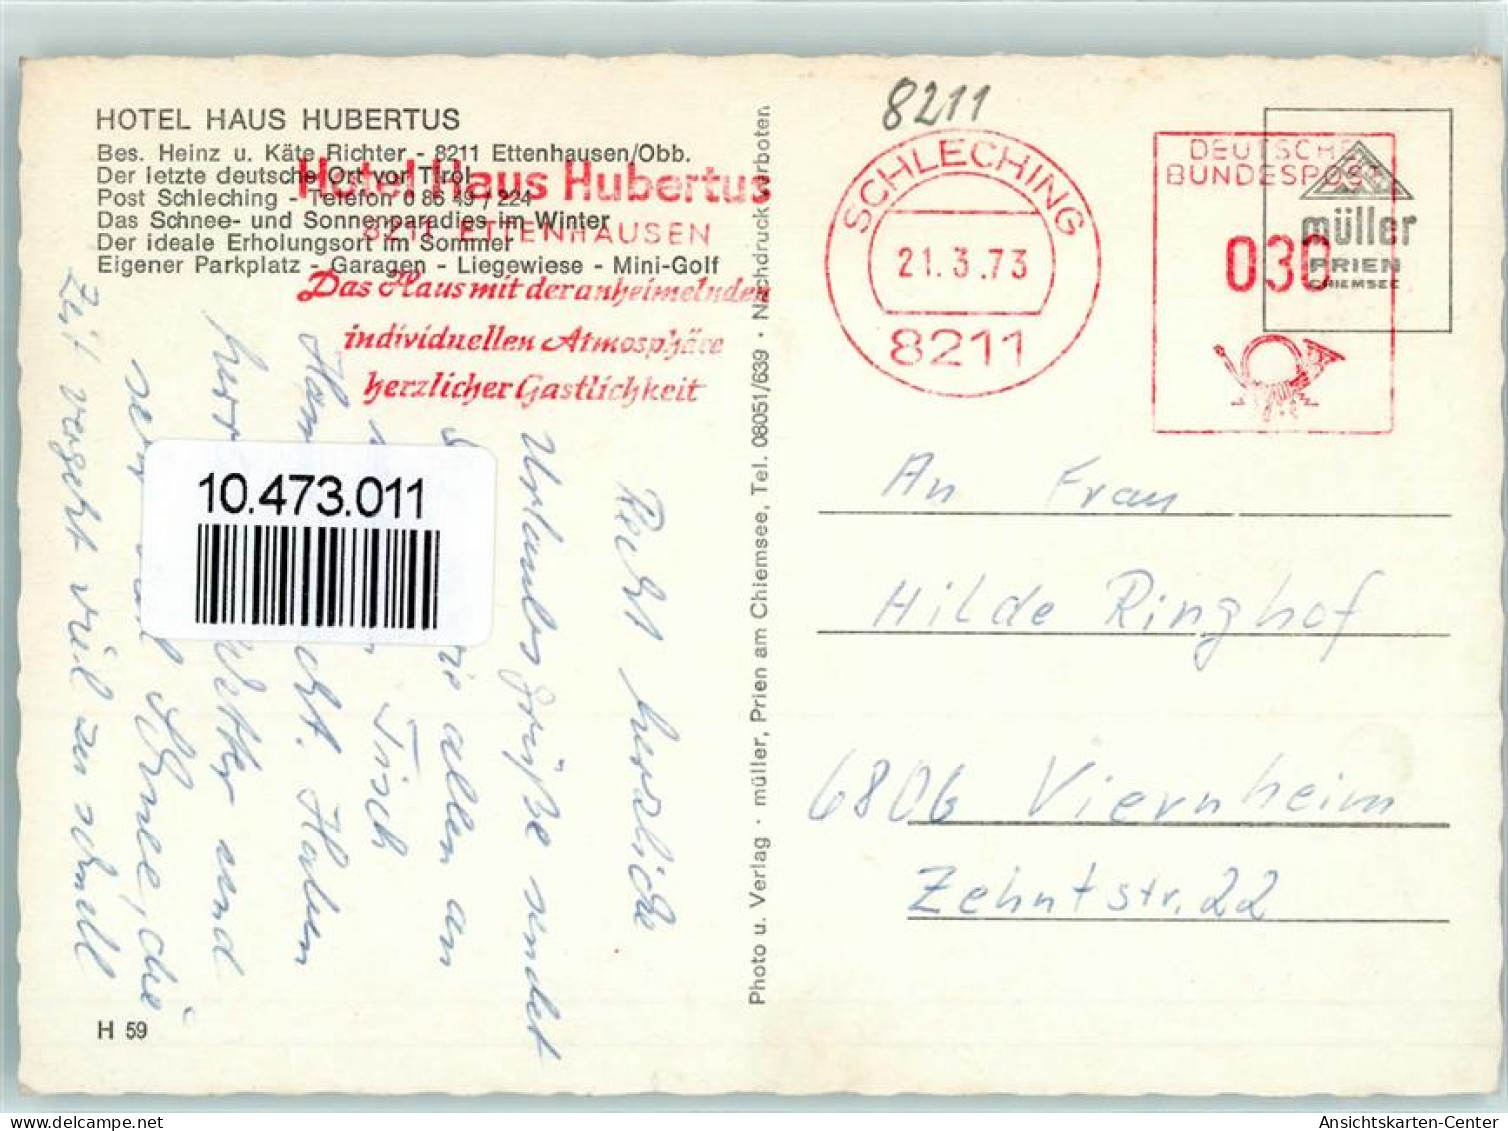 HOTEL HAUS HUBERTUS
Bes. Heinz u. Käte Richter - 8211 Ettenhausen/Obb.
Der letzte deutsche Ort vor Tirol
Post Schleching - Telefon 0 86 49 / 224
Das Schnee- und Sonnenparadies im Winter
Der ideale Erholungsort im Sommer
Eigener Parkplatz - Garagen - Liegewiese - Mini-Golf
Hotel Haus Hubertus
8211 ETTENHAUSEN
Das Haus mit der anheimelnden
individuellen Atmosphäre
herzlicher Gastlichkeit
8211
SCHLECHING
21.3.73
8211
DEUTSCHE
BUNDESPOST
030
müller
PRIEN
CHIEMSEE
Recht herzliche
Urlaubsgrüße sendet
allen am
Tisch
Haben
und
Schnee, die
Zeit vergeht viel zu schnell
10.473.011
Photo u. Verlag · müller, Prien am Chiemsee, Tel. 08051/639 · Nachdruck verboten
An Frau
Hilde Ringhof
6806 Viernheim
Zehntstr. 22
H 59
delcampe.net
Ansichtskarten-Center